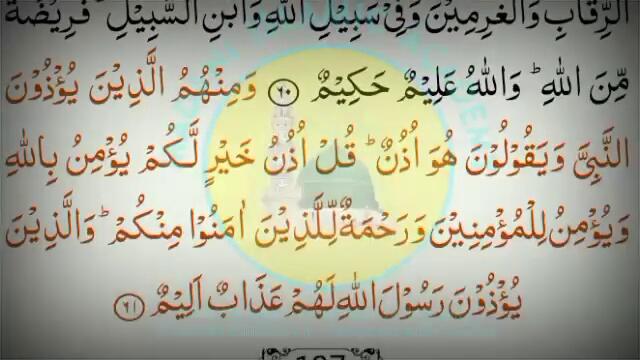 الرِّقَابِ وَالْغٰرِمِيْنَ وَفِيْ سَبِيْلِ اللّٰهِ وَابْنِ السَّبِيْلِ ؕ فَرِيْضَةً
مِّنَ اللّٰهِ ؕ وَاللّٰهُ عَلِيْمٌ حَكِيْمٌ ۝۶۰ وَمِنْهُمُ الَّذِيْنَ يُؤْذُوْنَ
النَّبِيَّ وَيَقُوْلُوْنَ هُوَ اُذُنٌ ؕ قُلْ اُذُنُ خَيْرٍ لَّكُمْ يُؤْمِنُ بِاللّٰهِ
وَيُؤْمِنُ لِلْمُؤْمِنِيْنَ وَرَحْمَةٌ لِّلَّذِيْنَ اٰمَنُوْا مِنْكُمْ ؕ وَالَّذِيْنَ
يُؤْذُوْنَ رَسُوْلَ اللّٰهِ لَهُمْ عَذَابٌ اَلِيْمٌ ۝۶۱